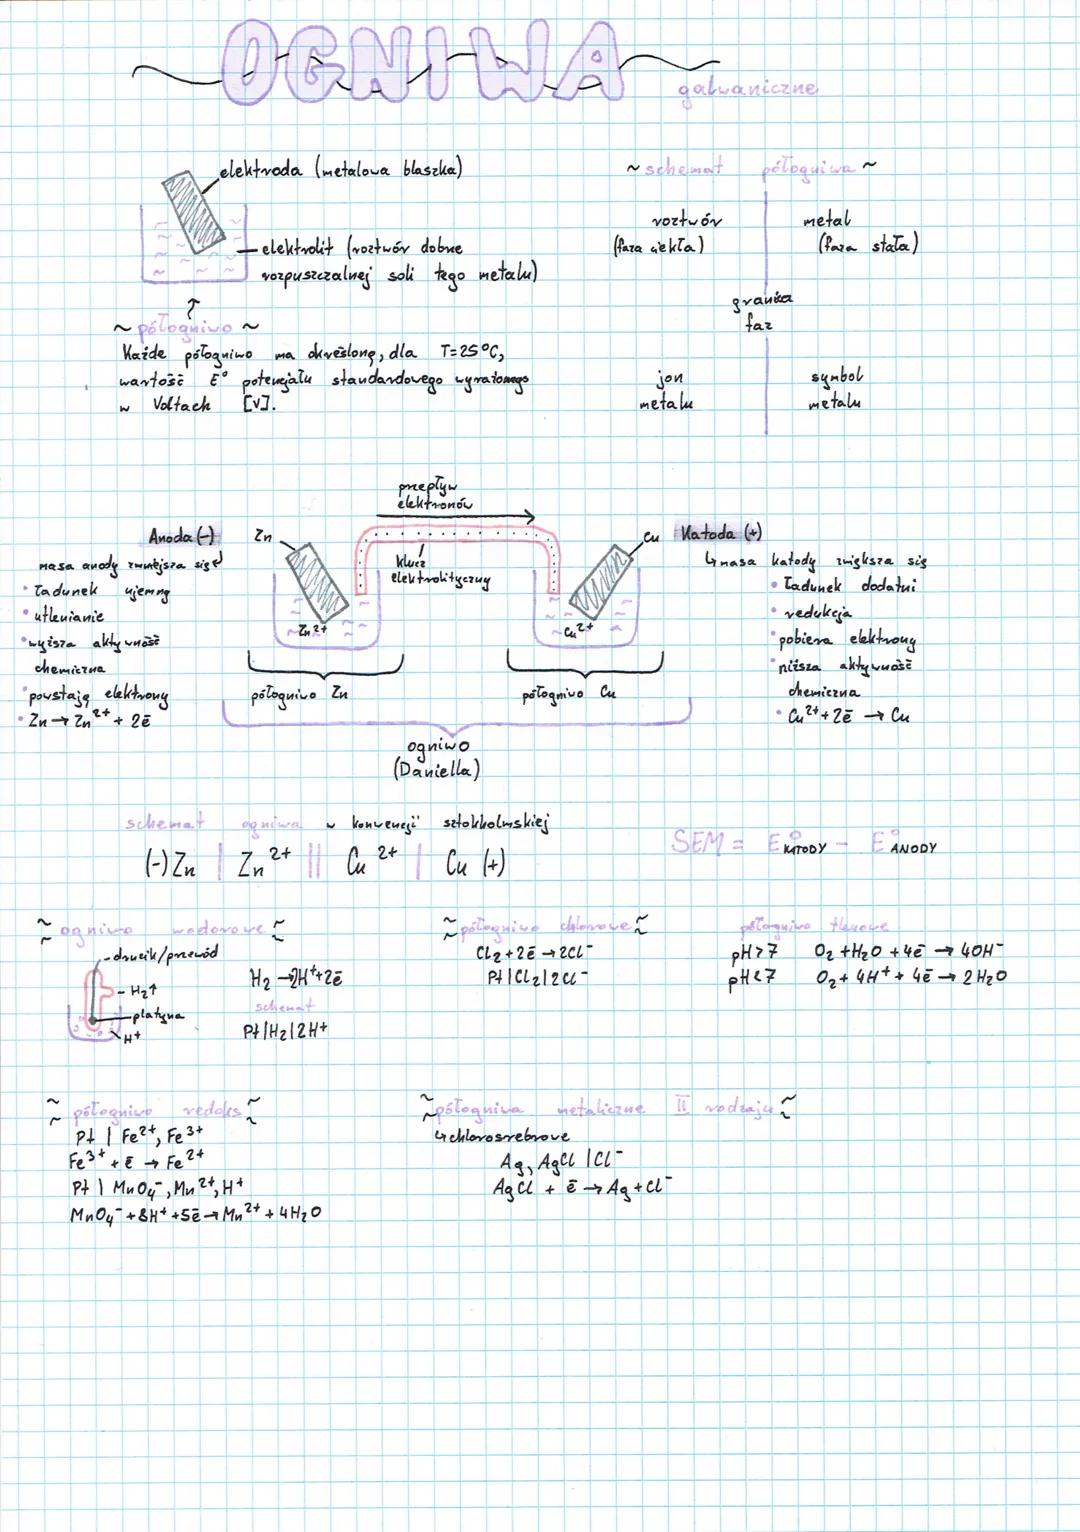 OGNIWA
galwaniczne
elektroda (metalowa blaszka)
elektrolit (roztwór dobrze
rozpuszczalnej soli tego metalu)
~ półogniwo ~
Każde półogniwo ma określoną, dla T=25°C,
wartość E° potencjału standardowego wyrażonego
w Voltach [V].
~ schemat półogniwa ~
roztwór
(faza ciekła)
metal
(faza stała)
granica
faz
jon
metalu
symbol
metalu
przepływ
elektronów
Anoda (-)
masa anody zmniejsza się
• ładunek ujemny
• utlenianie
• wyższa aktywność
chemiczna
• powstają elektrony
• Zn → Zn²⁺ + 2ē
Zn
klucz
elektrolityczny
Cu
Zn²⁺
Cu²⁺
Katoda (+)
↳ masa katody zwiększa się
• ładunek dodatni
• redukcja
• pobiera elektrony
• niższa aktywność
chemiczna
• Cu²⁺ + 2ē → Cu
półogniwo Zn
półogniwo Cu
ogniwo
(Daniella)
schemat ogniwa w konwencji sztokholmskiej
(-) Zn | Zn²⁺ || Cu²⁺ | Cu (+)
SEM = E° KATODY - E° ANODY
≈ ogniwo wodorowe ≈
drucik/przewód
H₂↑
platyna
H⁺
H₂ → 2H⁺ + 2ē
schemat
Pt | H₂ | 2H⁺
≈ półogniwo chlorowe ≈
Cl₂ + 2ē → 2Cl⁻
Pt | Cl₂ | 2Cl⁻
półogniwo tlenowe
pH>7 O₂ + H₂O + 4ē → 4OH⁻
pH<7 O₂ + 4H⁺ + 4ē → 2H₂O
≈ półogniwo redoks ≈
Pt | Fe²⁺, Fe³⁺
Fe³⁺ + ē → Fe²⁺
Pt | MnO₄⁻, Mn²⁺, H⁺
MnO₄⁻ + 8H⁺ + 5ē → Mn²⁺ + 4H₂O
≈ półogniwa metaliczne II rodzaju ≈
↳ chlorosrebrowe
Ag, AgCl | Cl⁻
AgCl + ē → Ag + Cl⁻